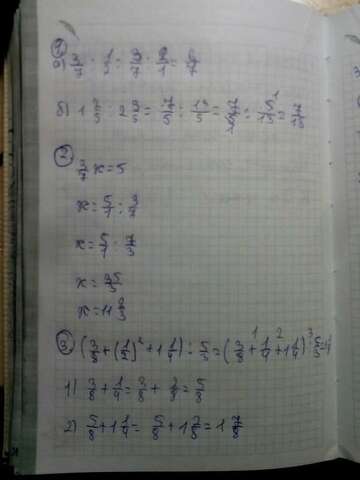 1.
а) 3/7 : 1/2 = 3/7 · 2/1 = 6/7
б) 1 2/5 : 2 3/5 = 7/5 : 13/5 = 7/5 · 5/13 = 7/13
2.
3/7 x = 5
x = 5/1 : 3/7
x = 5/1 · 7/3
x = 35/3
x = 11 2/3
3. (3/8 + (1/2)² + 1 1/4) : 5/3 = (3/8 + 1/4 + 1 1/4) : 5/3 =
1) 3/8 + 1/4 = 3/8 + 2/8 = 5/8
2) 5/8 + 1 1/4 = 5/8 + 1 2/8 = 1 7/8